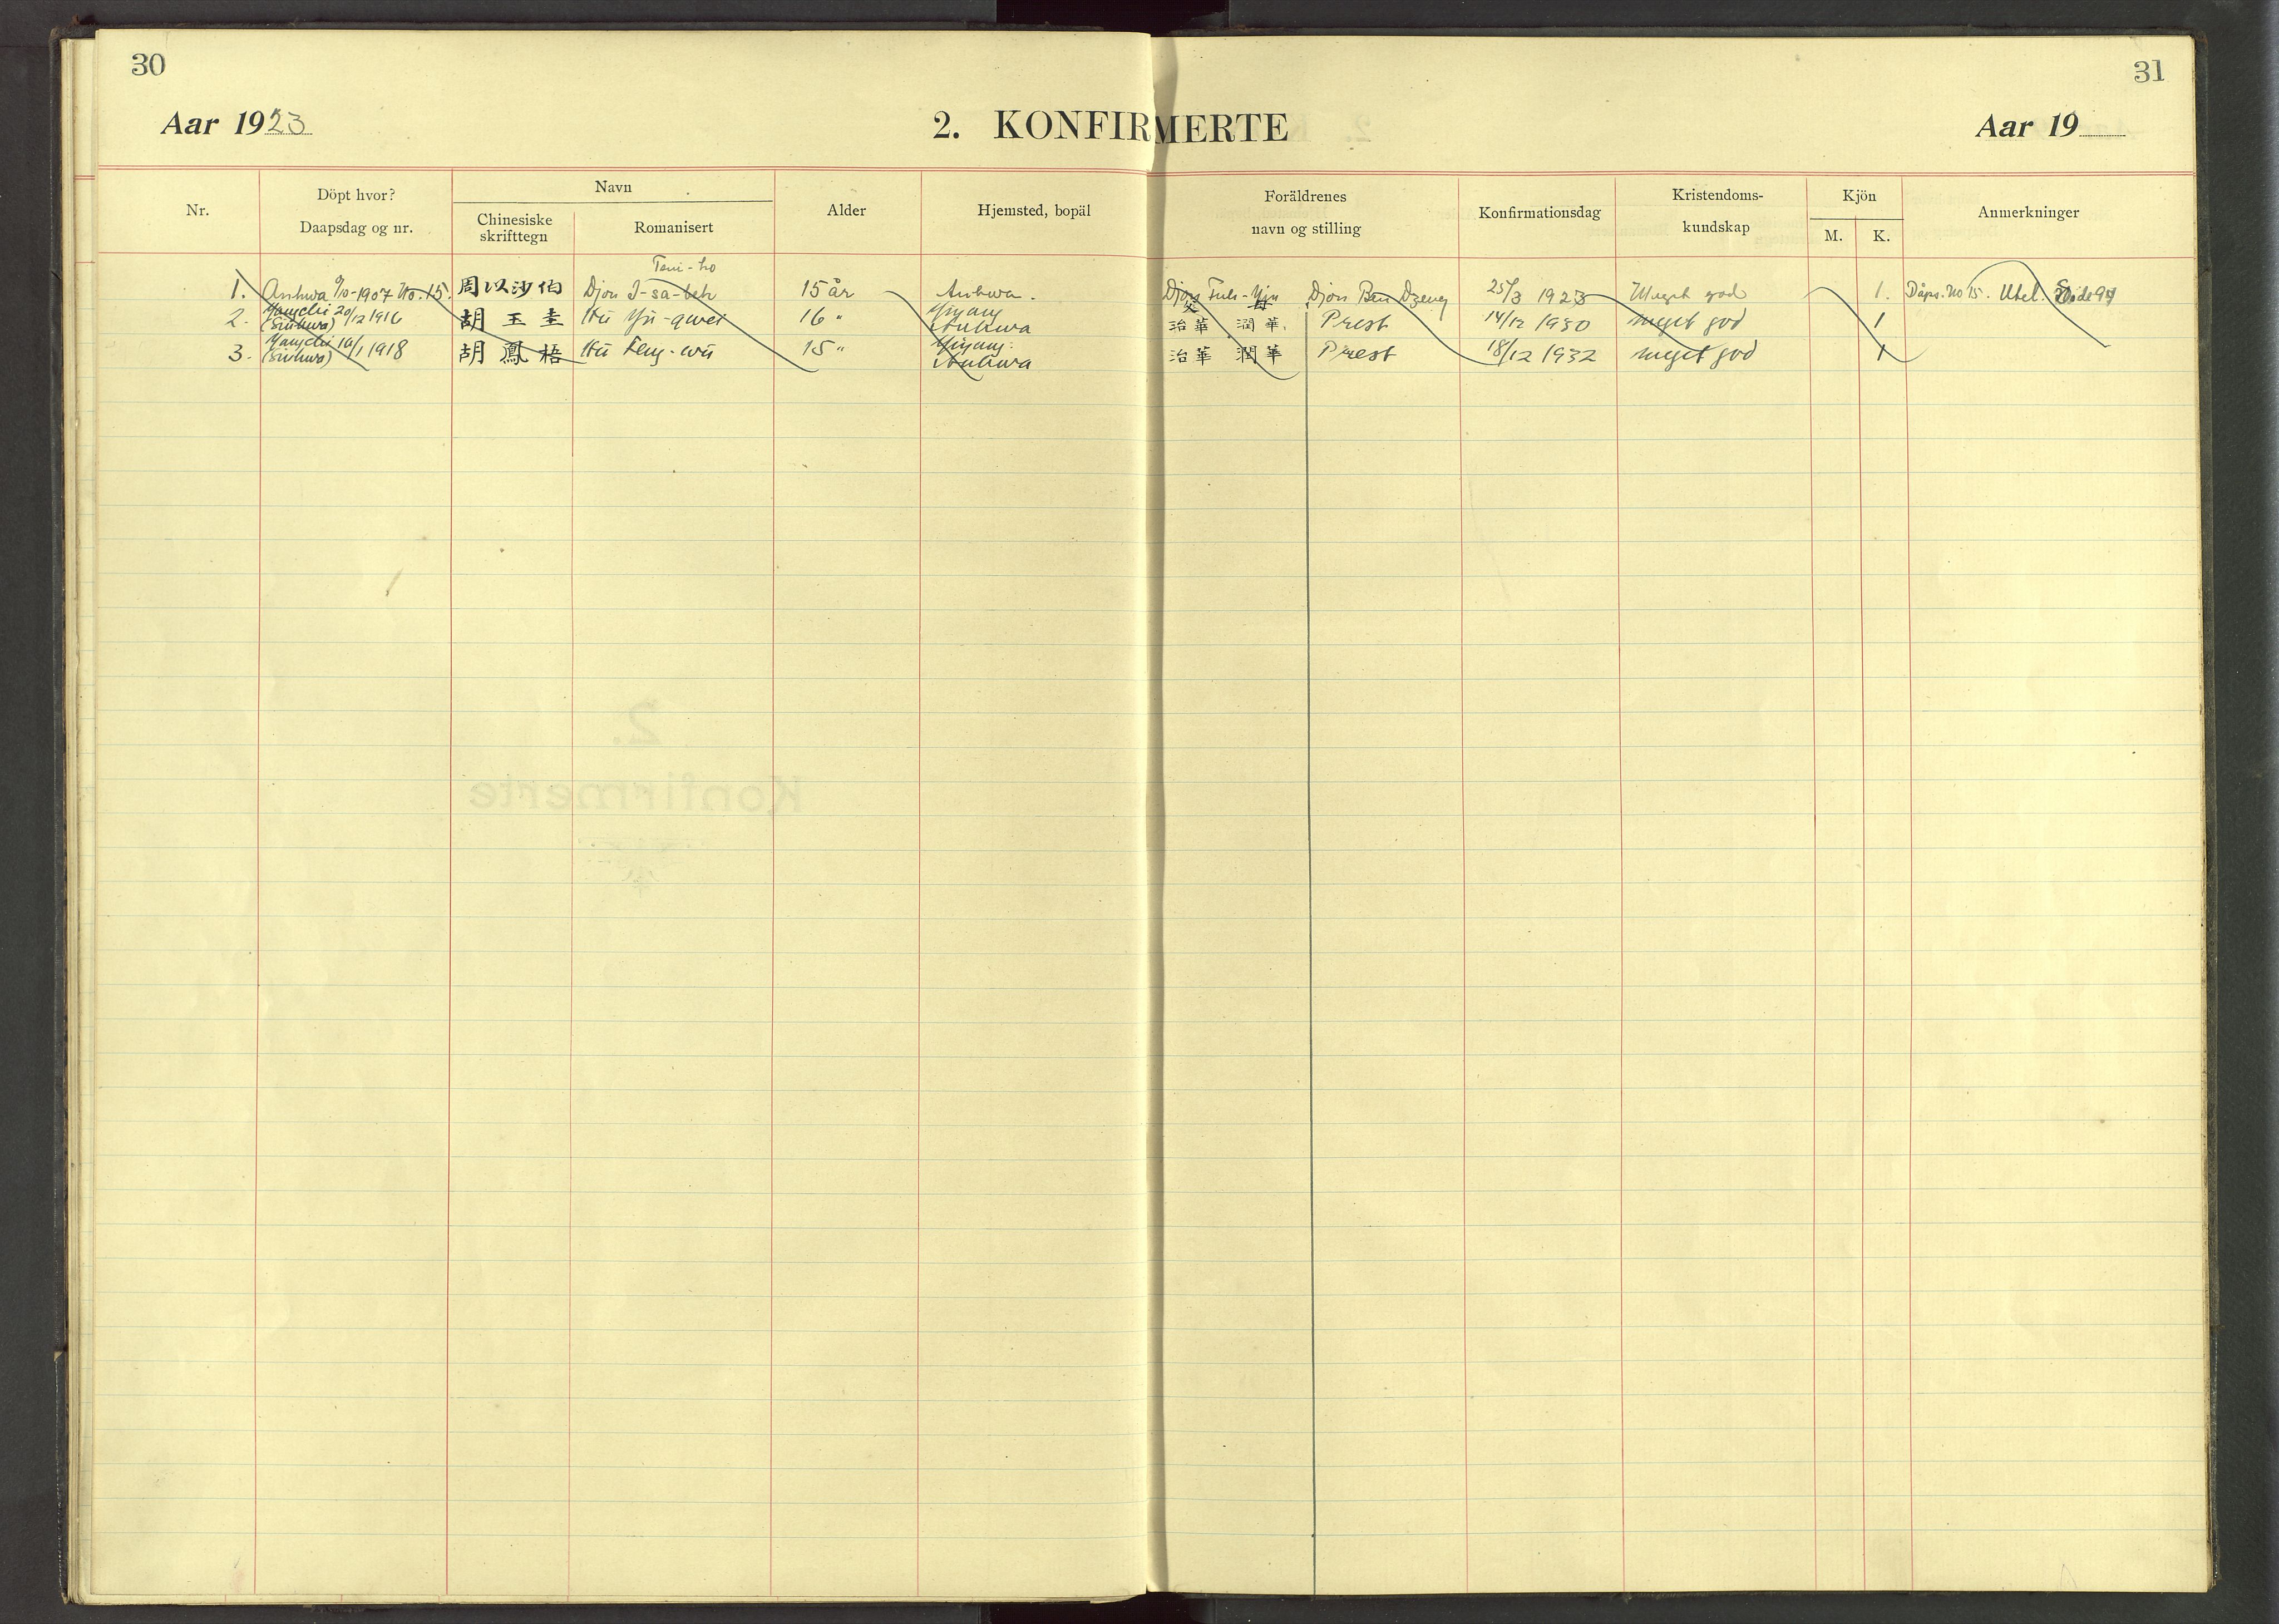 30
31
Aar 1923
2. KONFIRMERTE
Aar 19
Nr.
Döpt hvor?
Daapsdag og nr.
Navn
Chinesiske
skrifttegn
Romanisert
Alder
Hjemsted, bopäl
Foräldrenes
navn og stilling
Konfirmationsdag
Kristendoms-
kundskap
Kjön
M. K.
Anmerkninger
1. Anhwa 9/10-1907 No. 15. 周以沙伯 Djou I-sa-beh 15 år Anhwa. Djou Djou 25/3 1923 Meget god 1. Dåps. No 15. Utel. Side 97
父 母
2. Yangchi 20/12 1916 (Sinhwa) 胡 玉 圭 Hu Yü-qwei 16 " Yiyang Anhwa 治華 潤華 Prest 14/12 1930 meget god 1
3. Yangchi 10/1 1918 (Sinhwa) 胡 鳳 梧 Hu Feng-wu 15 " Yiyang Anhwa 治華 潤華 Prest 18/12 1932 meget god 1
2.
Konfirmerte